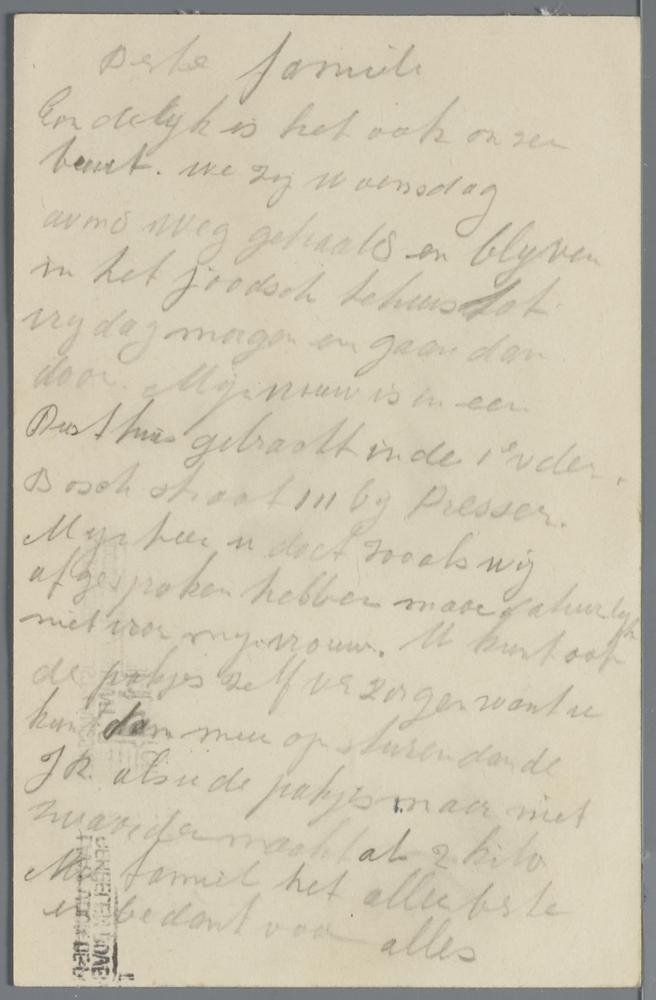 Beste famiele
Eindelyk is het ook onzen
beurt. We zij woensdag
avond weg gehaald en blyven
in het joodsch tehuis tot
vrydag morgen en gaan dan
door. Myn vrouw is in een
Rusthuis gebracht in de 1e v der
Bosch straat 111 by Presser.
Myn heer u doet zooals wij
afgesproken hebben maar natuurlyk
niet voor myn vrouw. U kunt ook
de pakjes zelf verzorgen want u
kunt dan meer op sturen dan de
J R. als u de pakjes maar niet
zwaarder maakt als 2 kilo
Nu famiel het aller beste
en bedant voor alles